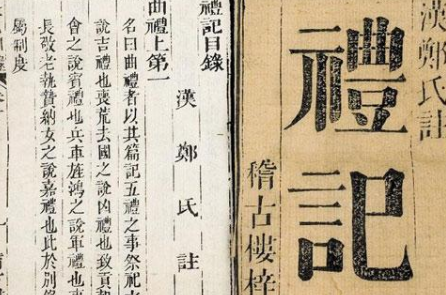 漢鄭氏註
禮記
稽古樓梓
禮記目錄
漢鄭氏註
曲禮上第一
名曰曲禮者以其篇記五禮之事祭祀
說吉禮也喪荒去國之說凶禮也致貢朝
會之說賓禮也兵車旌鴻之說軍禮也事
長敬老執贄納女之說嘉禮也此於別錄
屬制度